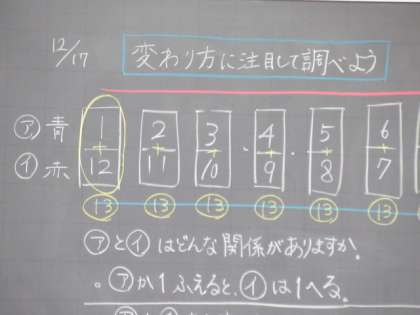 12/17 変わり方に注目して調べよう
㋐青 1 2 3 4 5 6
+ + + + + +
㋑赤 12 11 10 9 8 7
13 13 13 13 13 13
㋐と㋑はどんな関係がありますか。
。㋐が1ふえると、㋑は1へる。